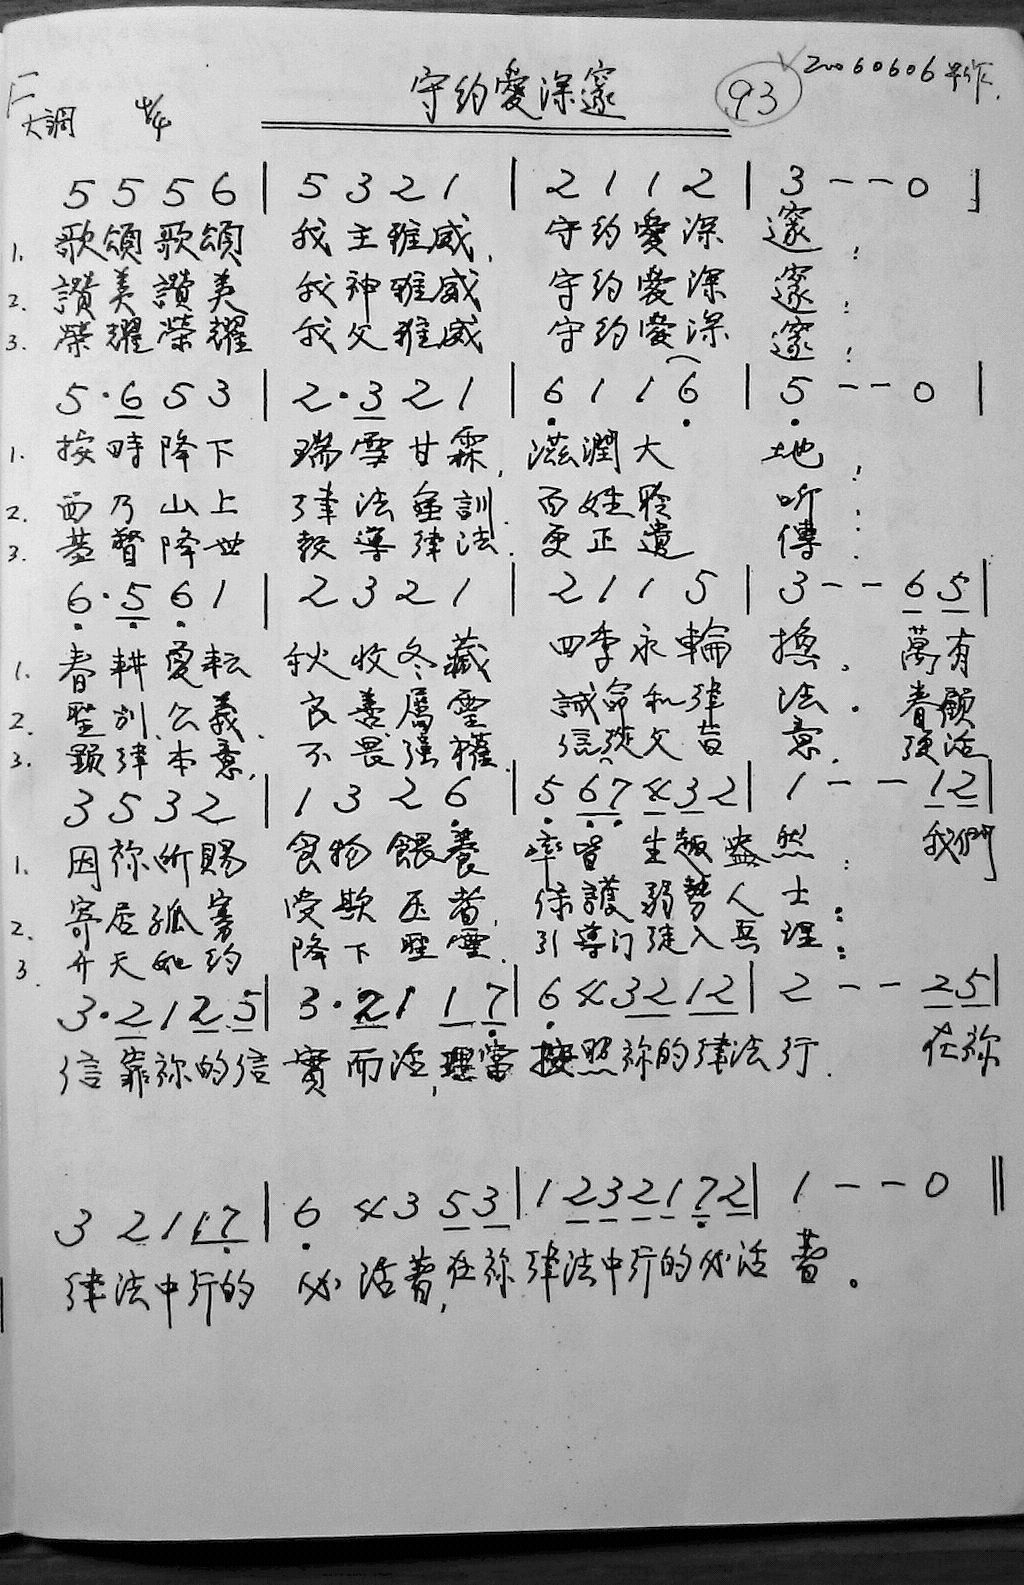 守約愛深邃 93 20060606早作.
F大調 4/4
5 5 5 6 | 5 3 2 1 | 2 1 1 2 | 3 - - 0 |
1. 歌頌歌頌 我主雅威, 守約愛深邃;
2. 讚美讚美 我神雅威 守約愛深邃;
3. 榮耀榮耀 我父雅威 守約愛深邃;
5 · 6 5 3 | 2 · 3 2 1 | 6 1 1 6 | 5 - - 0 |
1. 按時降下 瑞雪甘霖, 滋潤大地;
2. 西乃山上 律法金訓. 百姓聆听;
3. 基督降世 教導律法. 更正遺傳;
6 · 5 6 1 | 2 3 2 1 | 2 1 1 5 | 3 - - 6 5 |
1. 春耕夏耘 秋收冬藏 四季永輪換. 萬有
2. 聖別公義. 良善屬靈 誡命和律法. 眷顧
3. 顯律本意, 不畏强權. 信從父旨意. 復活
3 5 3 2 | 1 3 2 6 | 5 6 7 4 3 2 | 1 - - 1 2 |
1. 因祢所賜 食物餵養 率皆生趣盎然; 我們
2. 寄居孤寡 受欺压者, 保護弱勢人士;
3. 升天如約 降下聖靈. 引導门徒入真理;
3 · 2 1 2 5 | 3 · 2 1 1 7 | 6 4 3 2 1 2 | 2 - - 2 5 |
信靠祢的信實而活, 理當按照祢的律法行. 在祢
3 2 1 1 7 | 6 4 3 5 3 | 1 2 3 2 1 7 2 | 1 - - 0 ‖
律法中行的 必活着, 在祢律法中行的必活着。